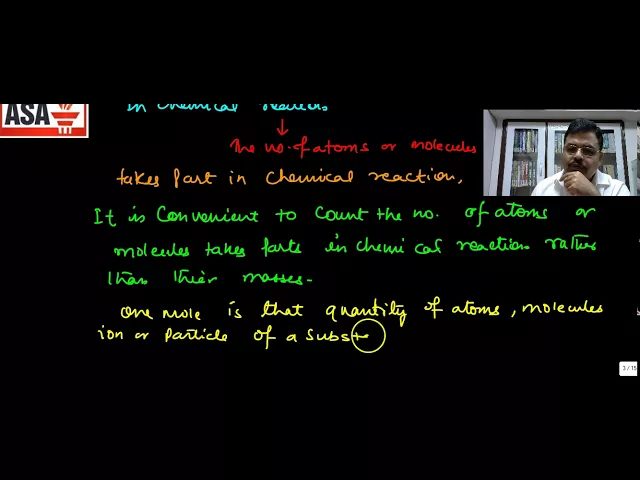 ASA
In chemical reactions
The no. of atoms or molecules
takes part in chemical reaction,
It is Convenient to count the no. of atoms or
molecules takes parts in chemical reaction rather
than their masses.
One mole is that quantity of atoms, molecules
ion or particle of a subst
3 / 15